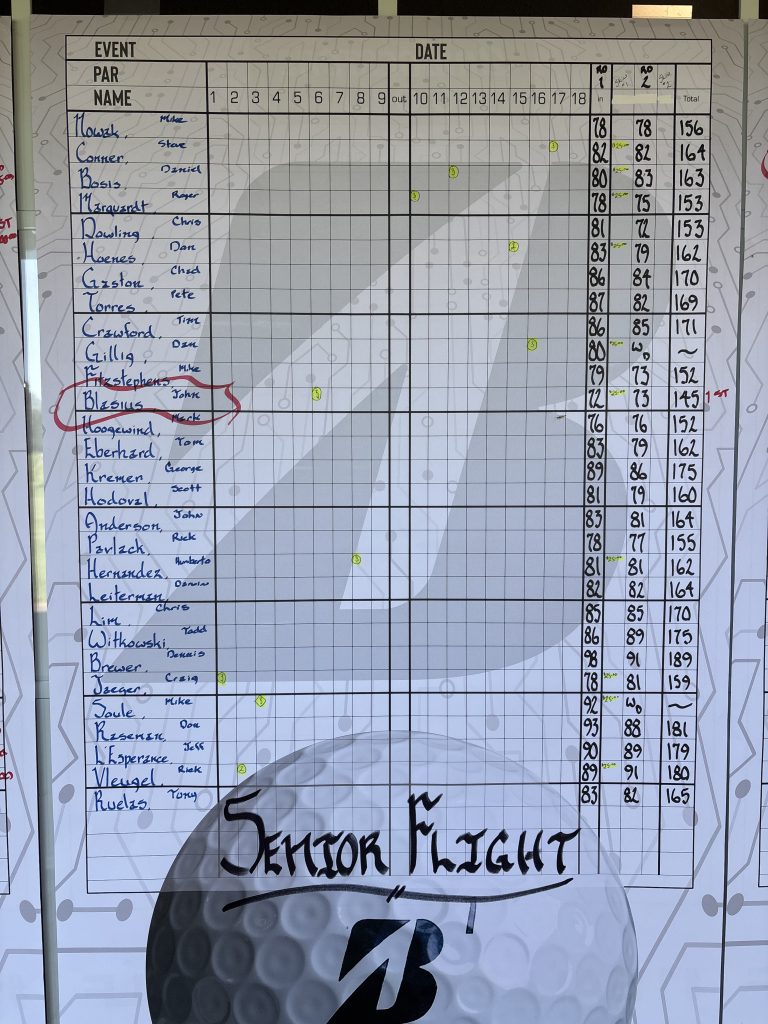 EVENT DATE
PAR RD 1 RD 2
NAME 1 2 3 4 5 6 7 8 9 out 10 11 12 13 14 15 16 17 18 in Total
Nowak, Mike 78 78 156
Conner, Steve 82 82 164
Bosis, Daniel 80 83 163
Marquardt, Roger 78 75 153
Dowling, Chris 81 72 153
Hoenes, Dan 83 79 162
Gaston, Chad 86 84 170
Torres, Pete 87 82 169
Crawford, Tim 86 85 171
Gillig, Dan 80 WD ~
Fitzstephens, Mike 79 73 152
Blasius, John 72 73 145 1ST
Hoogewind, Mark 76 76 152
Eberhard, Tom 83 79 162
Kremer, George 89 86 175
Hodoval, Scott 81 79 160
Anderson, John 83 81 164
Pavlack, Rick 78 77 155
Hernandez, Humberto 81 81 162
Leiterman, 82 82 164
Lim, Chris 85 85 170
Witkowski, Todd 86 89 175
Brewer, Dennis 98 91 189
Jaeger, Craig 78 81 159
Soule, Mike 92 WD ~
Raseman, Don 93 88 181
L'Esperance, Jeff 90 89 179
Vleugel, Rick 89 91 180
Ruelas, Tony 83 82 165
SENIOR FLIGHT
B